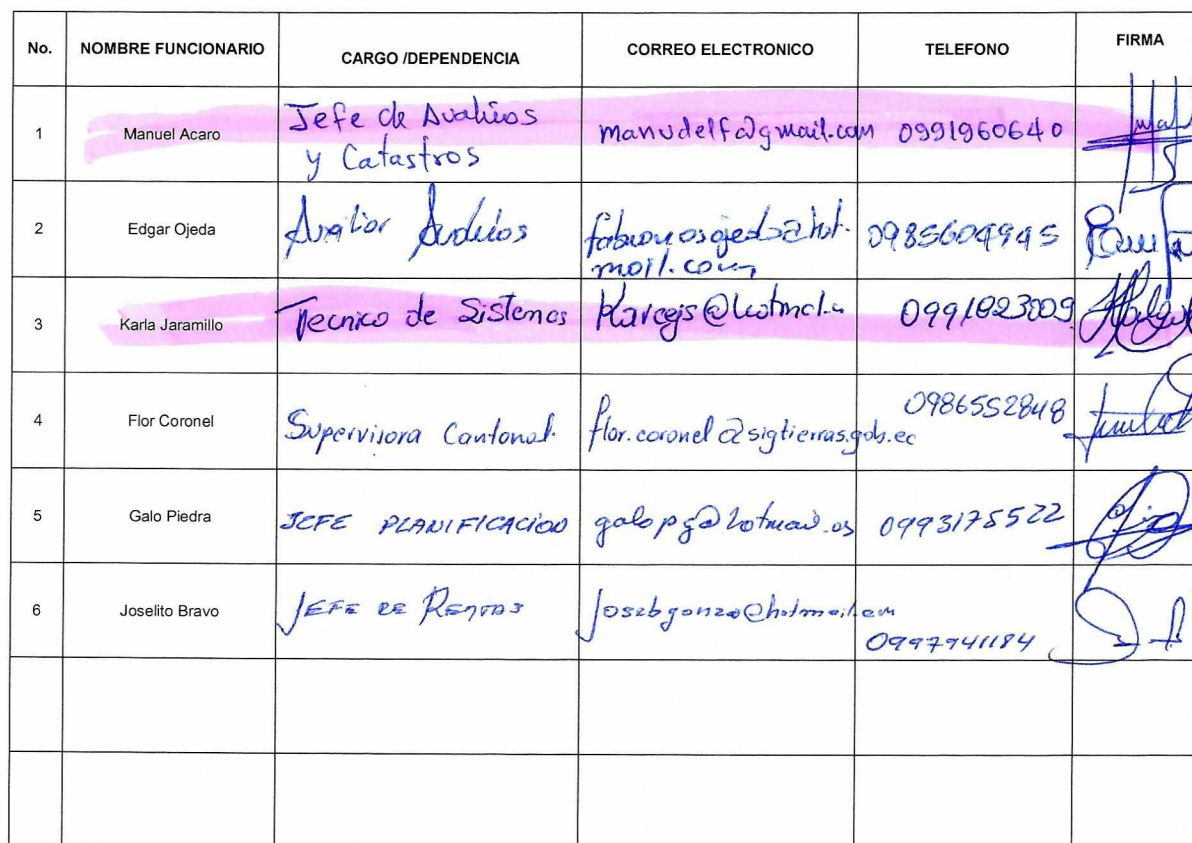 No. NOMBRE FUNCIONARIO CARGO /DEPENDENCIA CORREO ELECTRONICO TELEFONO FIRMA
1 Manuel Acaro Jefe de Avaluos manudelf@gmail.com 0991960640
y Catastros
2 Edgar Ojeda Auxiliar Avaluos 0985604945
3 Karla Jaramillo Tecnico de Sistemas 0991823009
4 Flor Coronel Supervisora Cantonal flor.coronel@sigtierras.gob.ec 0986552848
5 Galo Piedra JEFE PLANIFICACION 0993175522
6 Joselito Bravo JEFE DE RENTAS josebgonza@hotmail.com
0997941184